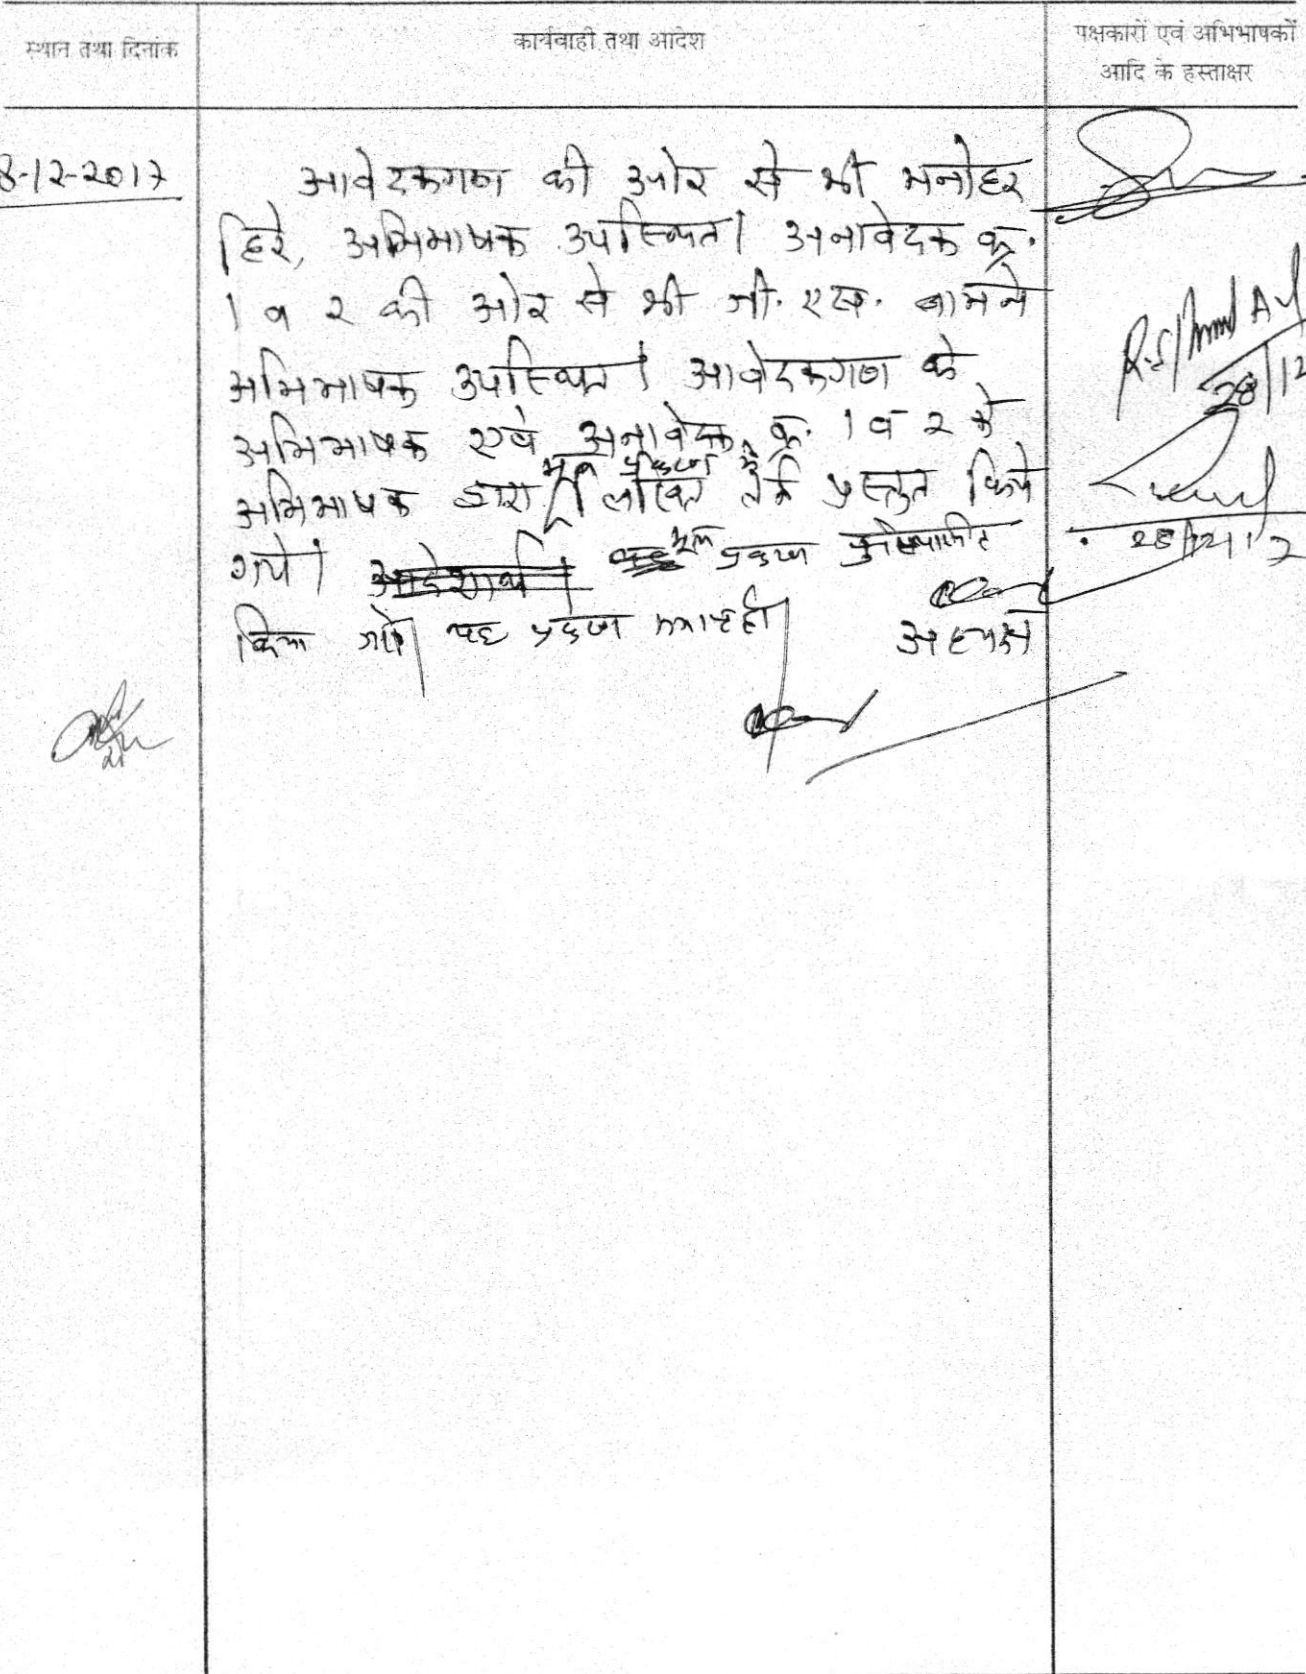 स्थान तथा दिनांक
कार्यवाही तथा आदेश
पक्षकारों एवं अभिभाषकों
आदि के हस्ताक्षर
8-12-2017
आवेदकगण की ओर से श्री मनोहर
हिरे, अभिभाषक उपस्थित। अनावेदक क्र.
1 व 2 की ओर से श्री जी. एस. बामने
अभिभाषक उपस्थित। आवेदकगण के
अभिभाषक एवं अनावेदक क्र. 1 व 2 के
मूल प्रकरण में
अभिभाषक द्वारा लिखित तर्क प्रस्तुत किये
गये। आदेशार्थ। मूल प्रकरण
किया गया। यह प्रकरण
अध्यक्ष
28/12
28/12/17